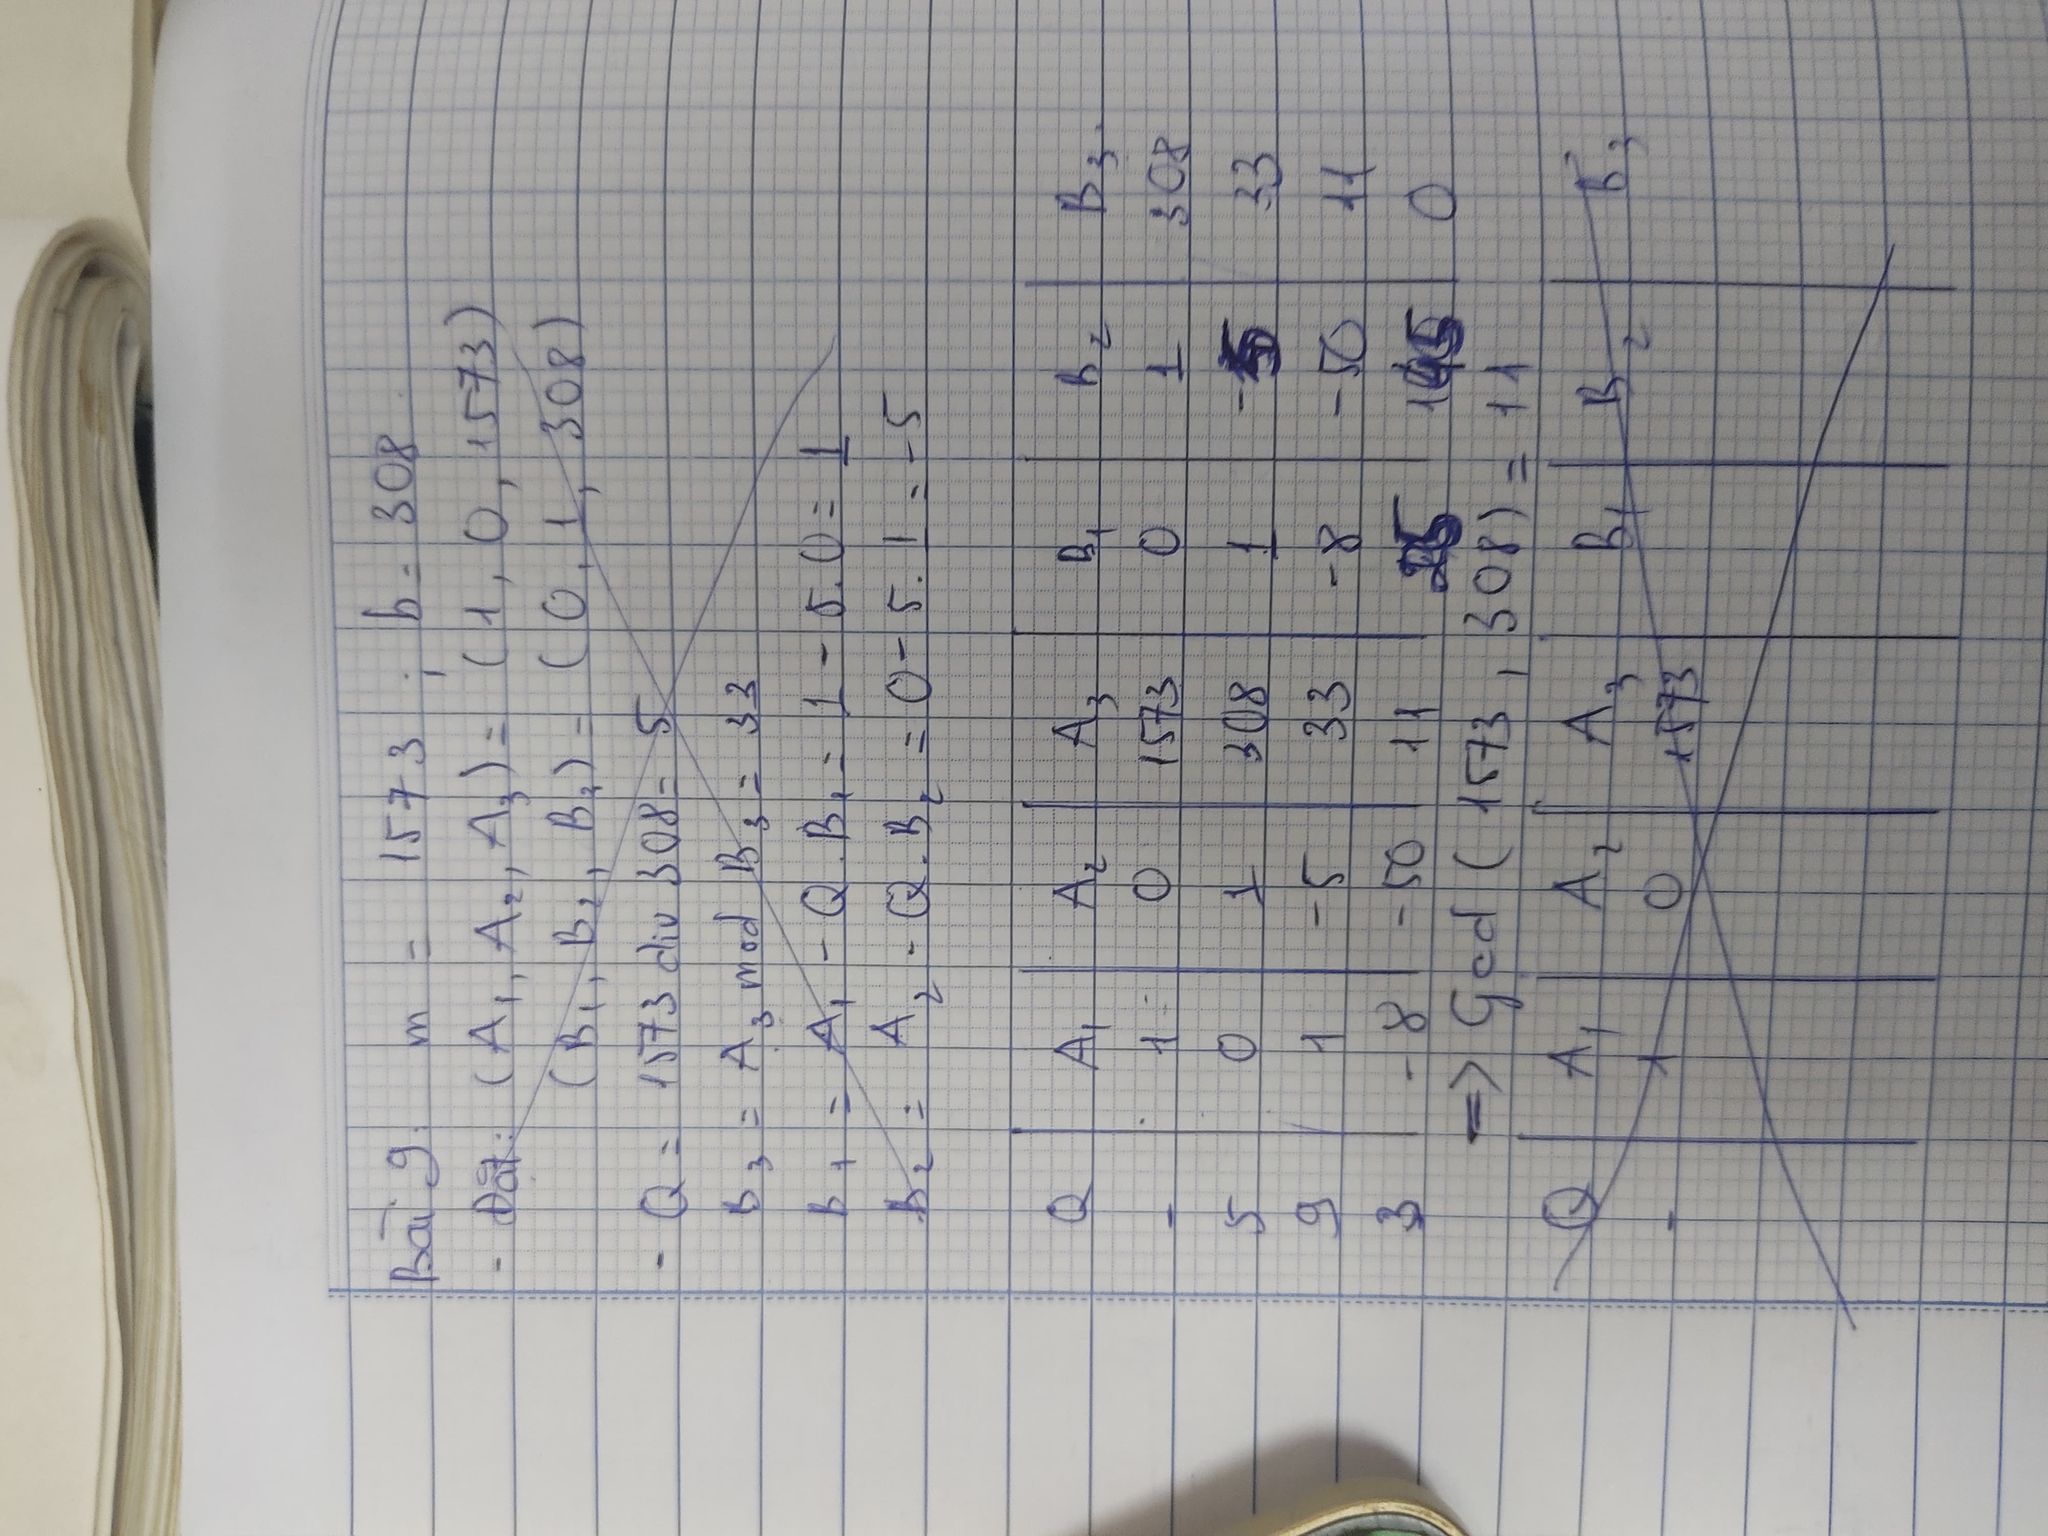 Bài 9: m = 1573 ; b = 308
- Đặt: (A1, A2, A3) = (1, 0, 1573)
(B1, B2, B3) = (0, 1, 308)
- Q = 1573 div 308 = 5
B3 = A3 mod B3 = 33
B1 = A1 - Q.B1 = 1 - 5.0 = 1
B2 = A2 - Q.B2 = 0 - 5.1 = -5
Q A1 A2 A3 B1 B2 B3
- 1 0 1573 0 1 308
5 0 1 308 1 -5 33
9 1 -5 33 -8 -50 11
3 -8 -50 11 25 145 0
=> Gcd (1573, 308) = 11
Q A1 A2 A3 B1 B2 B3
- 1 0 1573